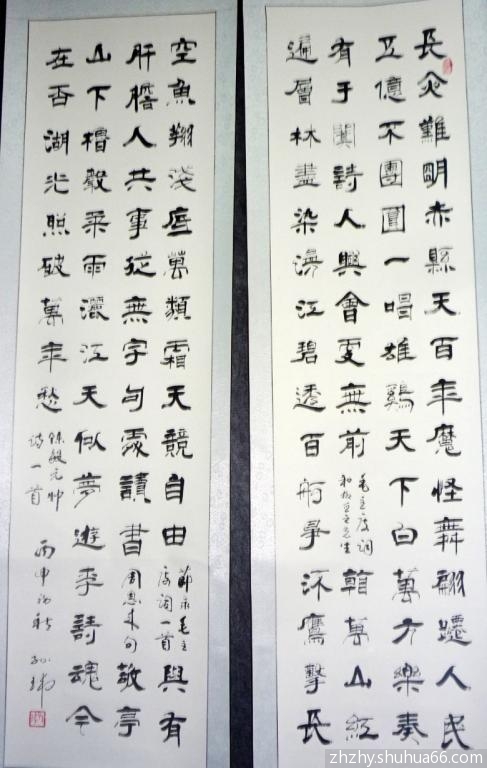 長夜難明赤縣天百年魔怪舞翩躚人民
五億不團圓一唱雄鷄天下白萬方樂奏
有于闐詩人興會更無前
毛主席詞
和柳亞子先生
看萬山紅
遍層林盡染漫江碧透百舸爭流鷹擊長
空魚翔淺底萬類霜天競自由
節录毛主
席词一首
與有
肝膽人共事從無字句處讀書
周恩来句
敬亭
山下櫓聲柔雨灑江天似夢遊李詩魂今
在否湖光照破萬年愁
陈毅元帅
诗一首
丙申初秋
zhzhy.shuhua66.com